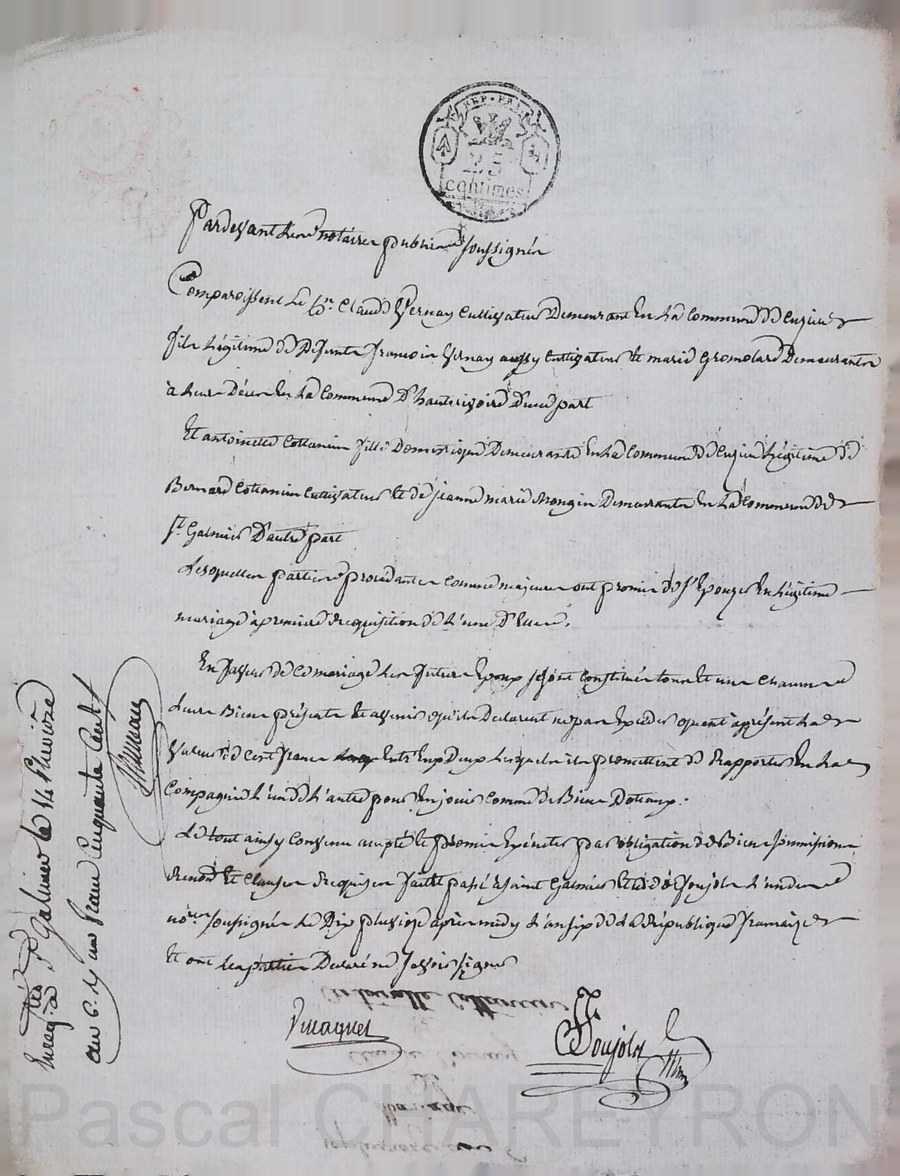 REP. FRA.
25
centimes
Pardevant les notaires publics soussignés
Comparoissent le Cn. Claude Vernay cultivateur demeurant en la commune de Cuzieu
fils légitime de défunts françois Vernay aussy cultivateur et marie Gromolard demeurants
à leur décès en la commune d'hauterivoire d'une part
Et antoinette Cottancin fille domestique demeurante en la commune de Cuzieu légitime de
Bernard Cottancin cultivateur et de jeanne marie Mongin demeurants en la commune de
St. Galmier d'autre part
Lesquelles parties procédantes comme majeures ont promis de s'épouser en légitime
mariage à première réquisition de l'une d'elles.
En faveur de ce mariage les futurs époux se sont constitués tous et uns chacuns
leurs Biens présents et avenir qu'ils déclarent ne pas excéder quant à présent la
valeur de cent francs entr'eux deux lesquels ils promettent de rapporter en la
compagnie l'un de l'autre pour en jouir comme de Biens dotaux.
Le tout ainsy convenu accepté et promis exécuter par obligation de Biens soumissions
renons. et clauses requises fait et passé à saint Galmier étude de Soujols l'un des
nores. soussignés le Dix pluviose après midy l'an six de la République française
et ont les parties déclaré ne savoir signer
Pascal CHAREYRON
Soujols
Enregtré. à St. Galmier le 14 Pluviôse
an 6. un franc cinquante cent.